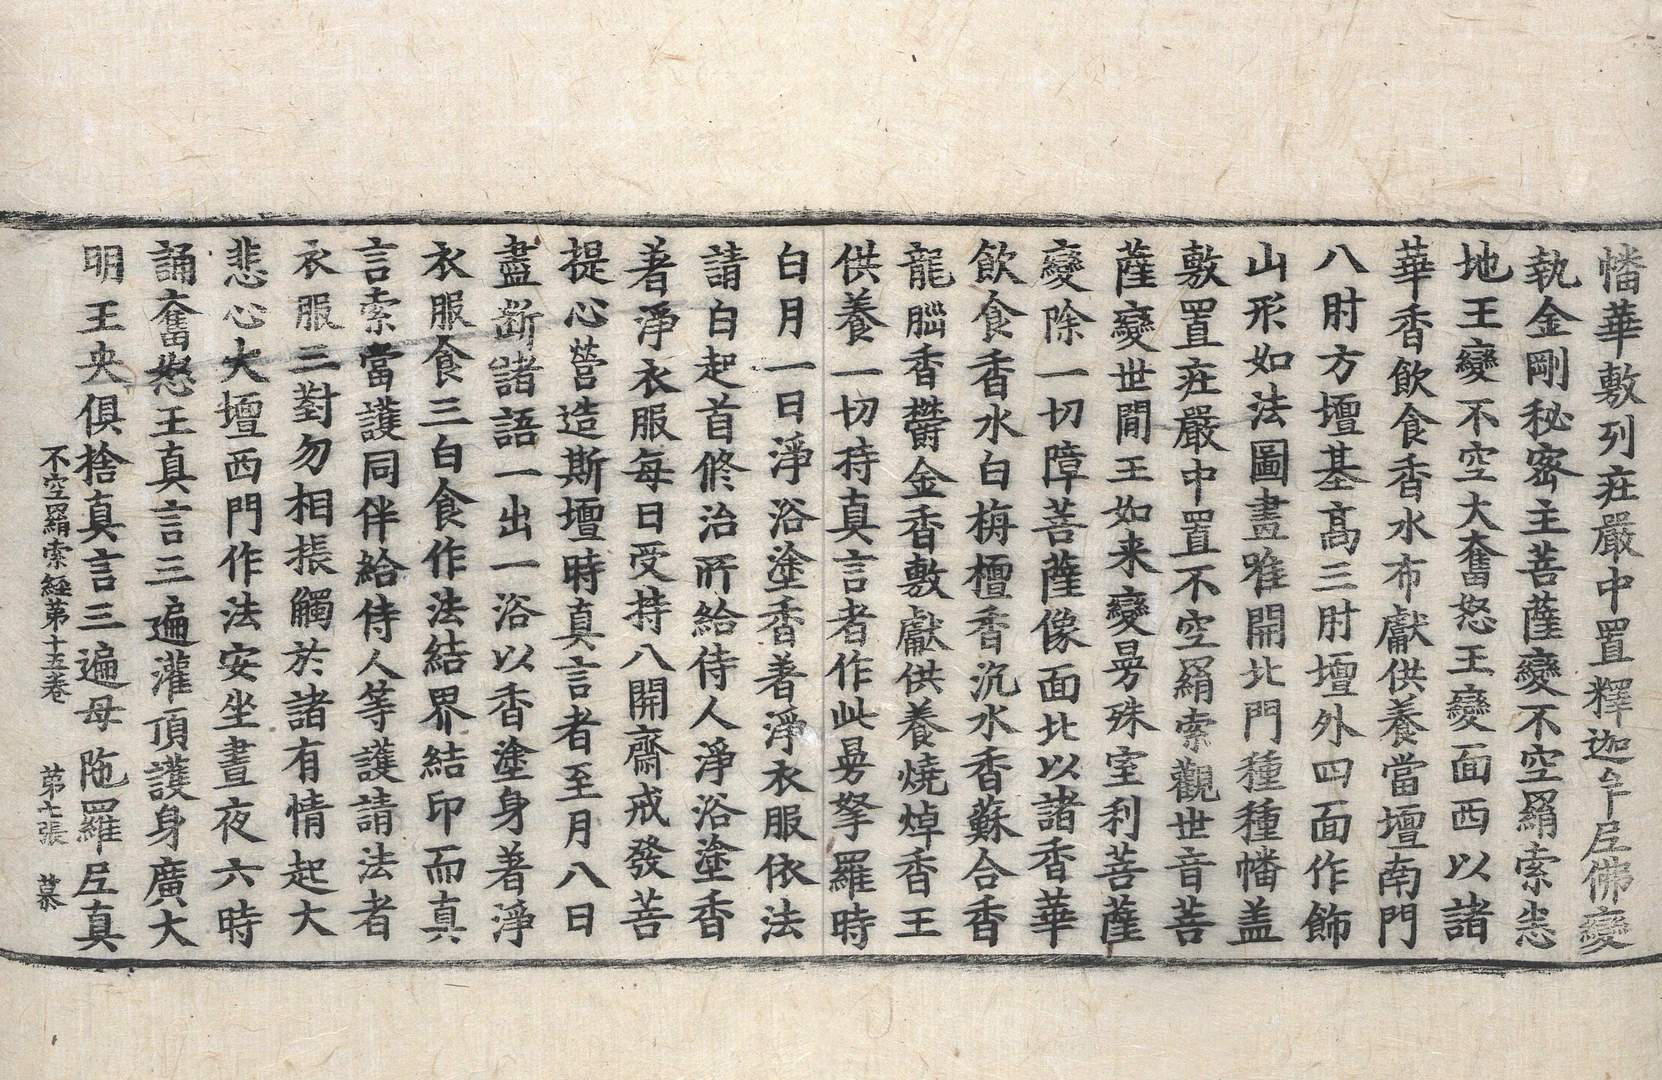 幡華敷列莊嚴中置釋迦牟尼佛變
執金剛秘密主菩薩變不空羂索悉
地王變不空大奮怒王變面西以諸
華香飲食香水布獻供養當壇南門
八肘方壇基高三肘壇外四面作飾
山形如法圖畫唯開北門種種幡盖
敷置莊嚴中置不空羂索觀世音菩
薩變世間王如来變曼殊室利菩薩
變除一切障菩薩像面北以諸香華
飲食香水白栴檀香沉水香蘇合香
龍腦香欝金香敷獻供養燒焯香王
供養一切持真言者作此曼拏羅時
白月一日淨浴塗香著淨衣服依法
請白起首修治所給侍人淨浴塗香
著淨衣服每日受持八開齋戒發菩
提心營造斯壇時真言者至月八日
盡斷諸語一出一浴以香塗身著淨
衣服食三白食作法結界結印而真
言索當護同伴給侍人等護請法者
衣服三對勿相振觸於諸有情起大
悲心大壇西門作法安坐晝夜六時
誦奮怒王真言三遍灌頂護身廣大
明王央俱捨真言三遍母陁羅尼真
不空羂索經第十五卷 第七張 慕